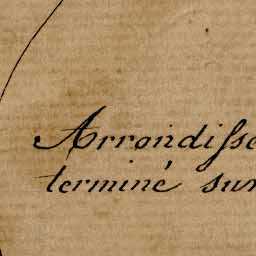 Arrondiſse
terminé sur